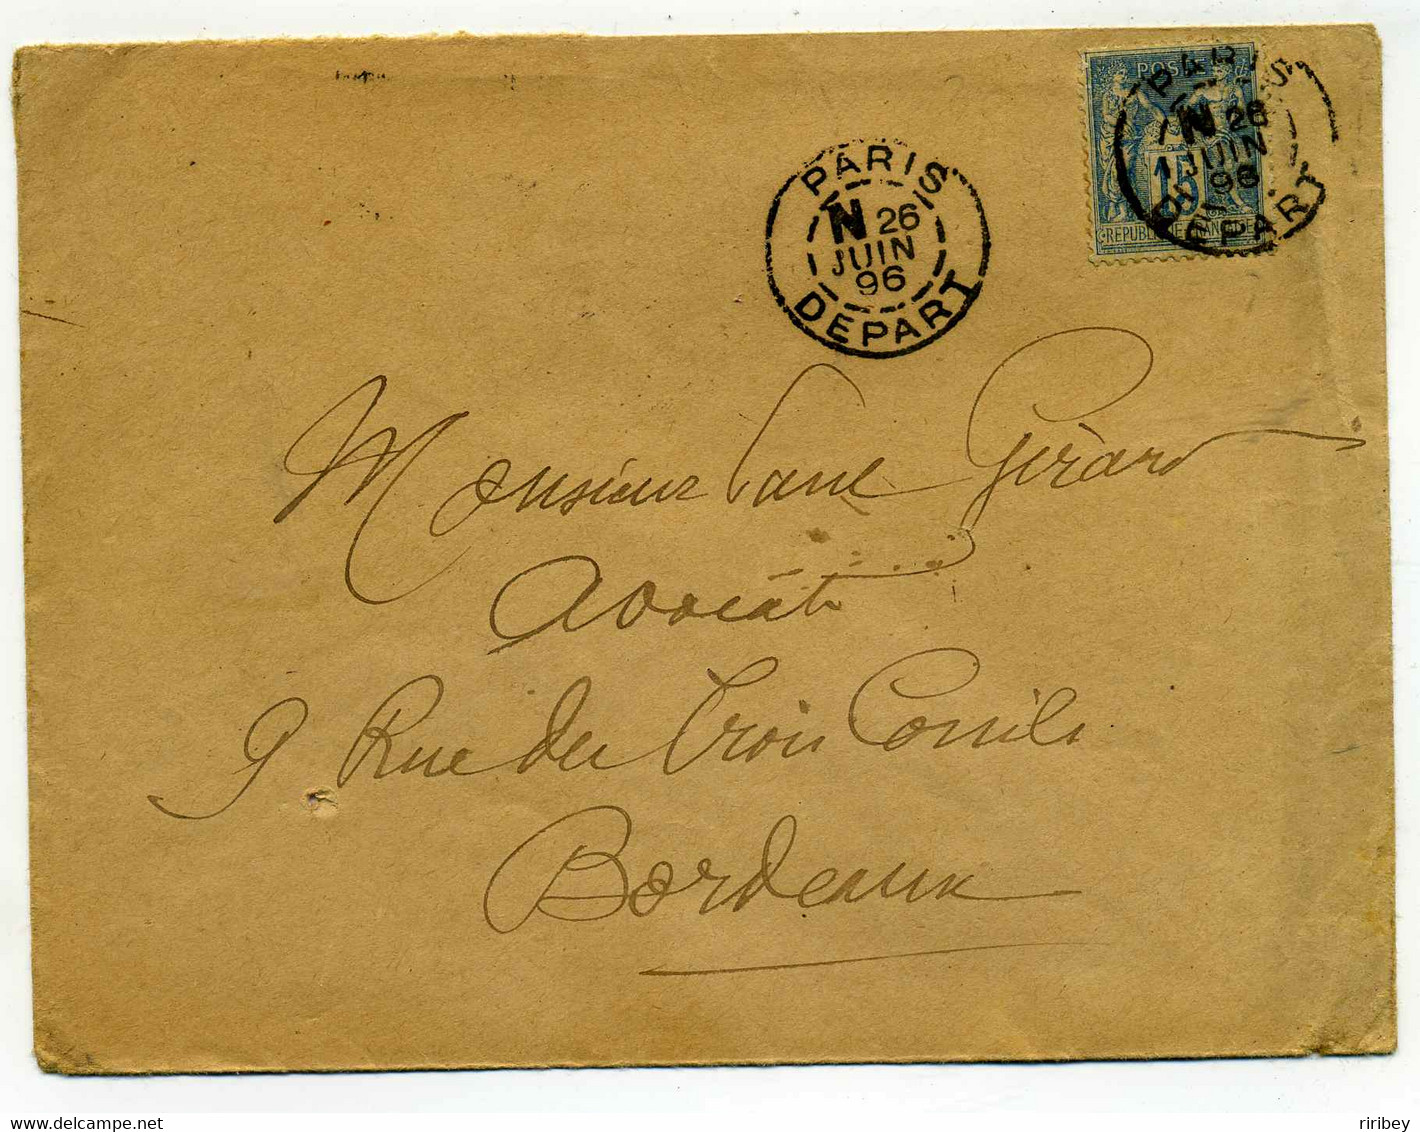 PARIS
N 26
JUIN
96
DEPART
POSTES
15
REPUBLIQUE FRANÇAISE
PARIS
N 26
JUIN
96
DEPART
Monsieur Paul Girard
Avocat
9 Rue des Trois Conils
Bordeaux
riribey